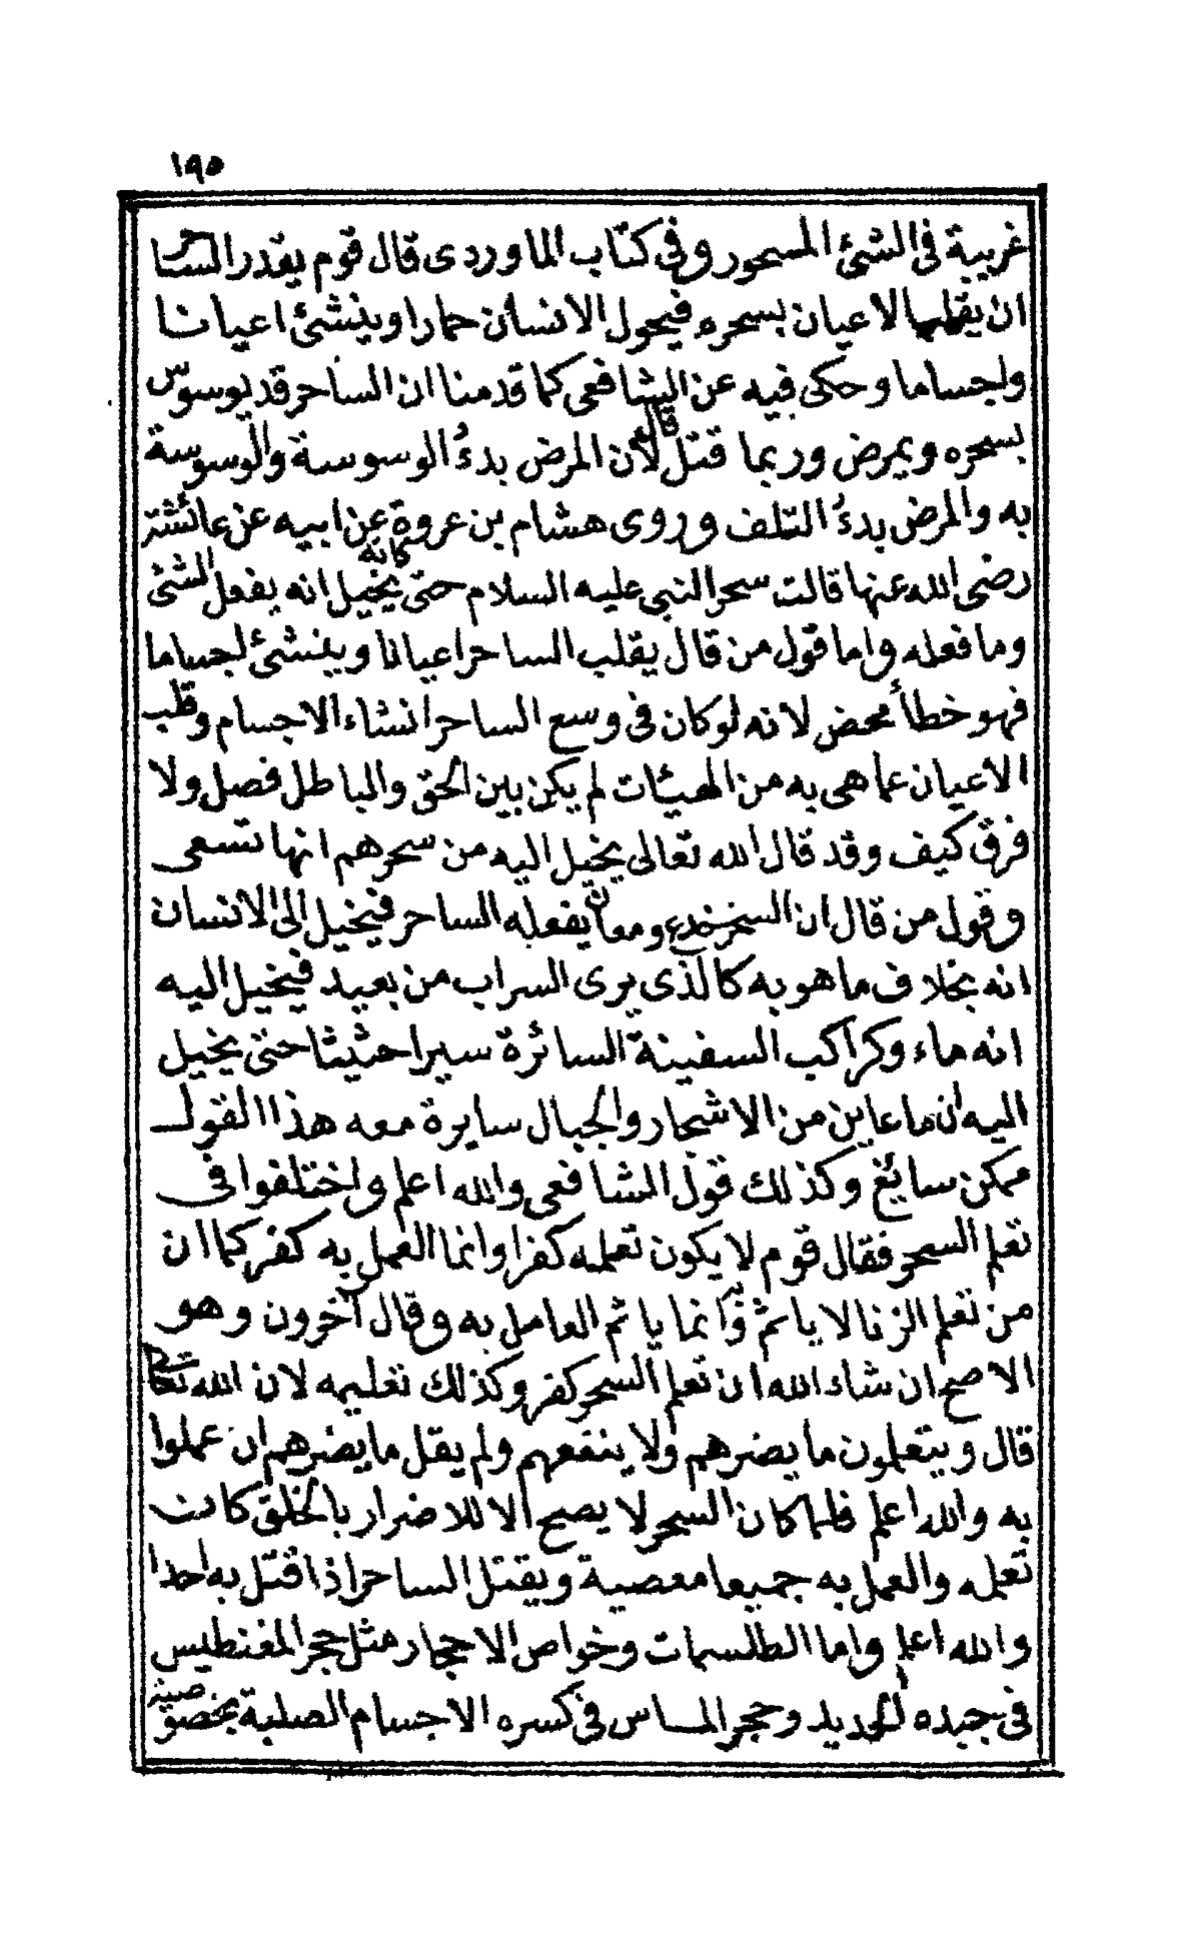 ١٩٥
غريبة فى الشئ المسحور وفى كتاب الماوردى قال قوم يقدر الساحر
ان يقلب الاعيان بسحره فيحول الانسان حمارا وينشئ اعيانا
واجساما وحكى فيه عن الشافعى كما قدمنا ان الساحر قد يوسوس
بسحره ويمرض وربما قتل قال لأن المرض بدءُ الوسوسة والوسوسة
به والمرض بدءُ التلف وروى هشام بن عروة عن ابيه عن عائشة
رضى الله عنها قالت سحر النبى عليه السلام حتى كانه يخيل انه يفعل الشئ
وما فعله واما قول من قال يقلب الساحر اعيانا وينشئ اجساما
فهو خطأ محض لانه لو كان فى وسع الساحر انشاء الاجسام وقلب
الاعيان عما هى به من الهيئات لم يكن بين الحق والباطل فصل ولا
فرق كيف وقد قال الله تعالى يخيل اليه من سحرهم انها تسعى
وقول من قال ان السحر خدع ومعان يفعله الساحر فيخيل الى الانسان
انه بخلاف ما هو به كالذى يرى السراب من بعيد فيخيل اليه
انه ماء وكراكب السفينة السائرة سيرا حثيثا حتى يخيل
اليه ان ما عاين من الاشجار والجبال سايرة معه هذا القول
ممكن سايغ وكذلك قول الشافعى والله اعلم واختلفوا فى
تعلم السحر فقال قوم لا يكون تعلمه كفرا وانما العمل به كفر كما ان
من تعلم الزنا لا ياثم به وانما ياثم العامل به وقال آخرون وهو
الاصح ان شاء الله ان تعلم السحر كفر وكذلك تعليمه لان الله تعالى
قال ويتعلمون ما يضرهم ولا ينفعهم ولم يقل ما يضرهم ان عملوا
به والله اعلم فلما كان السحر لا يصح الا للاضرار بالخلق كانت
تعلمه والعمل به جميعا معصية ويقتل الساحر اذا قتل به احدا
والله اعلم واما الطلسمات وخواص الاحجار مثل حجر المغنطيس
فى جبده الحديد وحجر الماس فى كسره الاجسام الصلبة بخصوصية